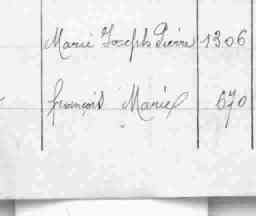 Marie Joseph Pierre 1306
François Marie 670